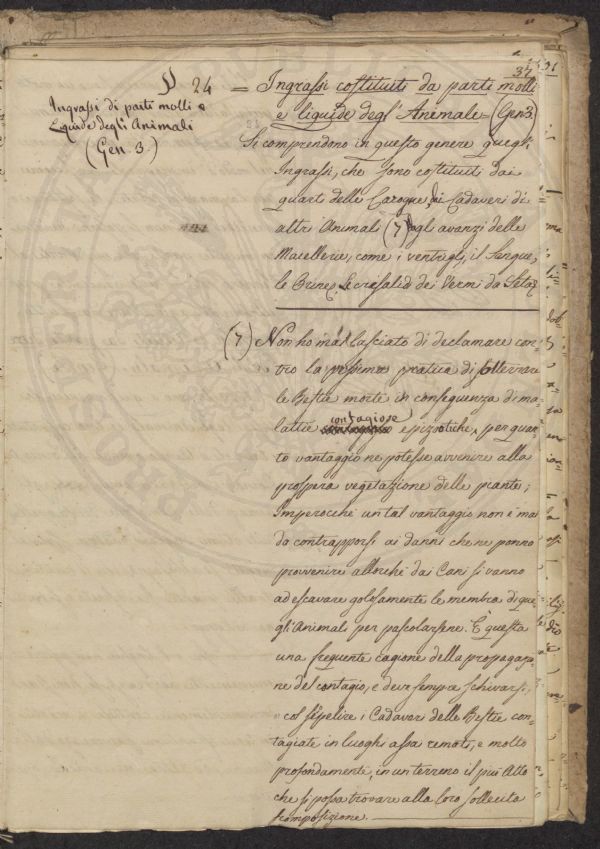 37
§ 24
Ingrassi di parti molli e
Liquide degl'Animali
(Gen. 3.)
= Ingrassi costituiti da parti molli
e liquide degl'Animali = (Gen. 3.)
Si comprendono in questo genere quegli
Ingrassi, che sono costituiti dai
quarti delle Carogne, di Cadaveri di
altri Animali (7) dagli avanzi delle
Macellerie, come i ventrigli, il Sangue,
le Orine, Le crisalidi dei Vermi da Seta.
(7) Non ho mai lasciato di declamare con-
tro la pessima pratica di sotterrare
le Bestie morte in conseguenza di ma-
lattie contagiose epizootiche, per quan-
to vantaggio ne potesse avvenire alla
prospera vegetazione delle piante;
Imperocchè un tal vantaggio non è mai
da contrapporsi ai danni che ne ponno
provvenire allorchè dai Cani si vanno
ad escavare golosamente le membra di que-
gli Animali per pascolarsene. E questa
una frequente cagione della propagazio-
ne del contagio, e deve sempre schivarsi,
col sepelire i Cadaveri delle Bestie con-
tagiate in luoghi assai remoti, e molto
profondamente, in un terreno il più Atto
che si possa trovare alla loro sollecita
scomposizione.